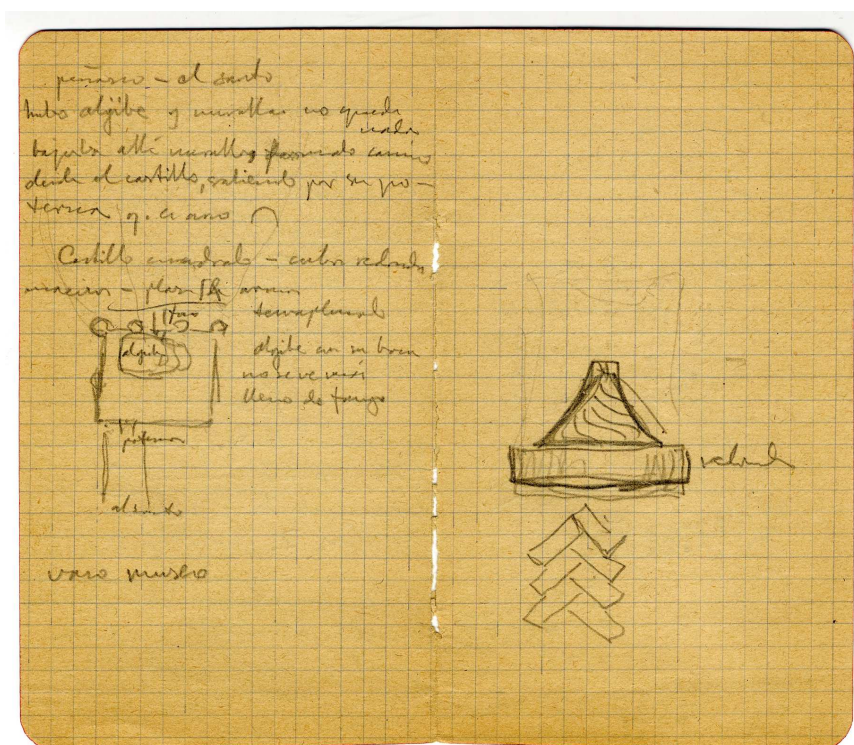 peñasco – al santo
hubo algibe y murallas no queda
nada
allí murallas formando camino
desde el castillo, saliendo por su po-
terna
Castillo cuadrado – cubos redondos
macizos – plaza de armas
terraplenado
foso
algibe
algibe con su boca
no se ve más
lleno de fango
poterna
al santo
vaso museo
redondo